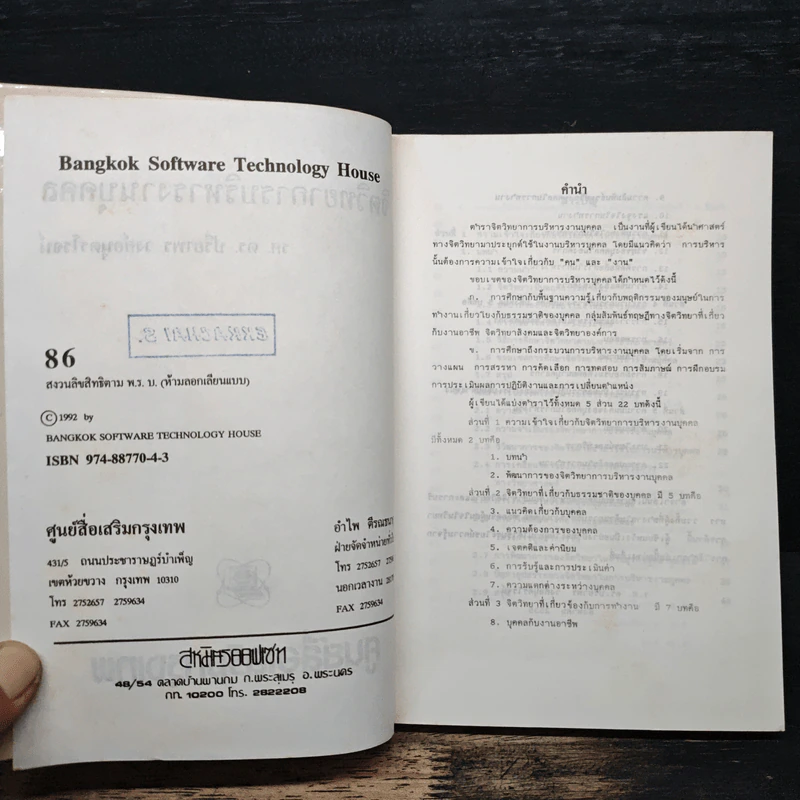 Bangkok Software Technology House
86
สงวนลิขสิทธิ์ตาม พ.ร.บ. (ห้ามลอกเลียนแบบ)
© 1992 by
BANGKOK SOFTWARE TECHNOLOGY HOUSE
ISBN 974-88770-4-3
ศูนย์สื่อเสริมกรุงเทพ
431/5 ถนนประชาราษฎร์บำเพ็ญ
เขตห้วยขวาง กรุงเทพ 10310
โทร 2752657 2759634
FAX 2759634
อำไพ
ฝ่ายจัดจำหน่าย
โทร 2752657
นอกเวลางาน
FAX 2759634
สหมิตรออฟเซท
48/54 ตลาดบ้านพานถม ถ.พระสุเมรุ อ.พระนคร
กท. 10200 โทร. 2822208
คำนำ
ตำราจิตวิทยาการบริหารงานบุคคล เป็นงานที่ผู้เขียนได้นำศาสตร์
ทางจิตวิทยามาประยุกต์ใช้ในงานบริหารบุคคล โดยมีแนวคิดว่า การบริหาร
นั้นต้องการความเข้าใจเกี่ยวกับ "คน" และ "งาน"
ขอบเขตของจิตวิทยาการบริหารบุคคลได้กำหนดไว้ดังนี้
ก. การศึกษากับพื้นฐานความรู้เกี่ยวกับพฤติกรรมของมนุษย์ในการ
ทำงานเกี่ยวโยงกับธรรมชาติของบุคคล กลุ่มสัมพันธ์ทฤษฎีทางจิตวิทยาที่เกี่ยว
กับงานอาชีพ จิตวิทยาสังคมและจิตวิทยาองค์การ
ข. การศึกษาถึงกระบวนการบริหารงานบุคคล โดยเริ่มจาก การ
วางแผน การสรรหา การคัดเลือก การทดสอบ การสัมภาษณ์ การฝึกอบรม
การประเมินผลการปฏิบัติงานและการเปลี่ยนตำแหน่ง
ผู้เขียนได้แบ่งตำราไว้ทั้งหมด 5 ส่วน 22 บทดังนี้
ส่วนที่ 1 ความเข้าใจเกี่ยวกับจิตวิทยาการบริหารงานบุคคล
มีทั้งหมด 2 บทคือ
1. บทนำ
2. พัฒนาการของจิตวิทยาการบริหารงานบุคคล
ส่วนที่ 2 จิตวิทยาที่เกี่ยวกับธรรมชาติของบุคคล มี 5 บทคือ
3. แนวคิดเกี่ยวกับบุคคล
4. ความต้องการของบุคคล
5. เจตคติและค่านิยม
6. การรับรู้และการประเมินค่า
7. ความแตกต่างระหว่างบุคคล
ส่วนที่ 3 จิตวิทยาที่เกี่ยวข้องกับการทำงาน มี 7 บทคือ
8. บุคคลกับงานอาชีพ